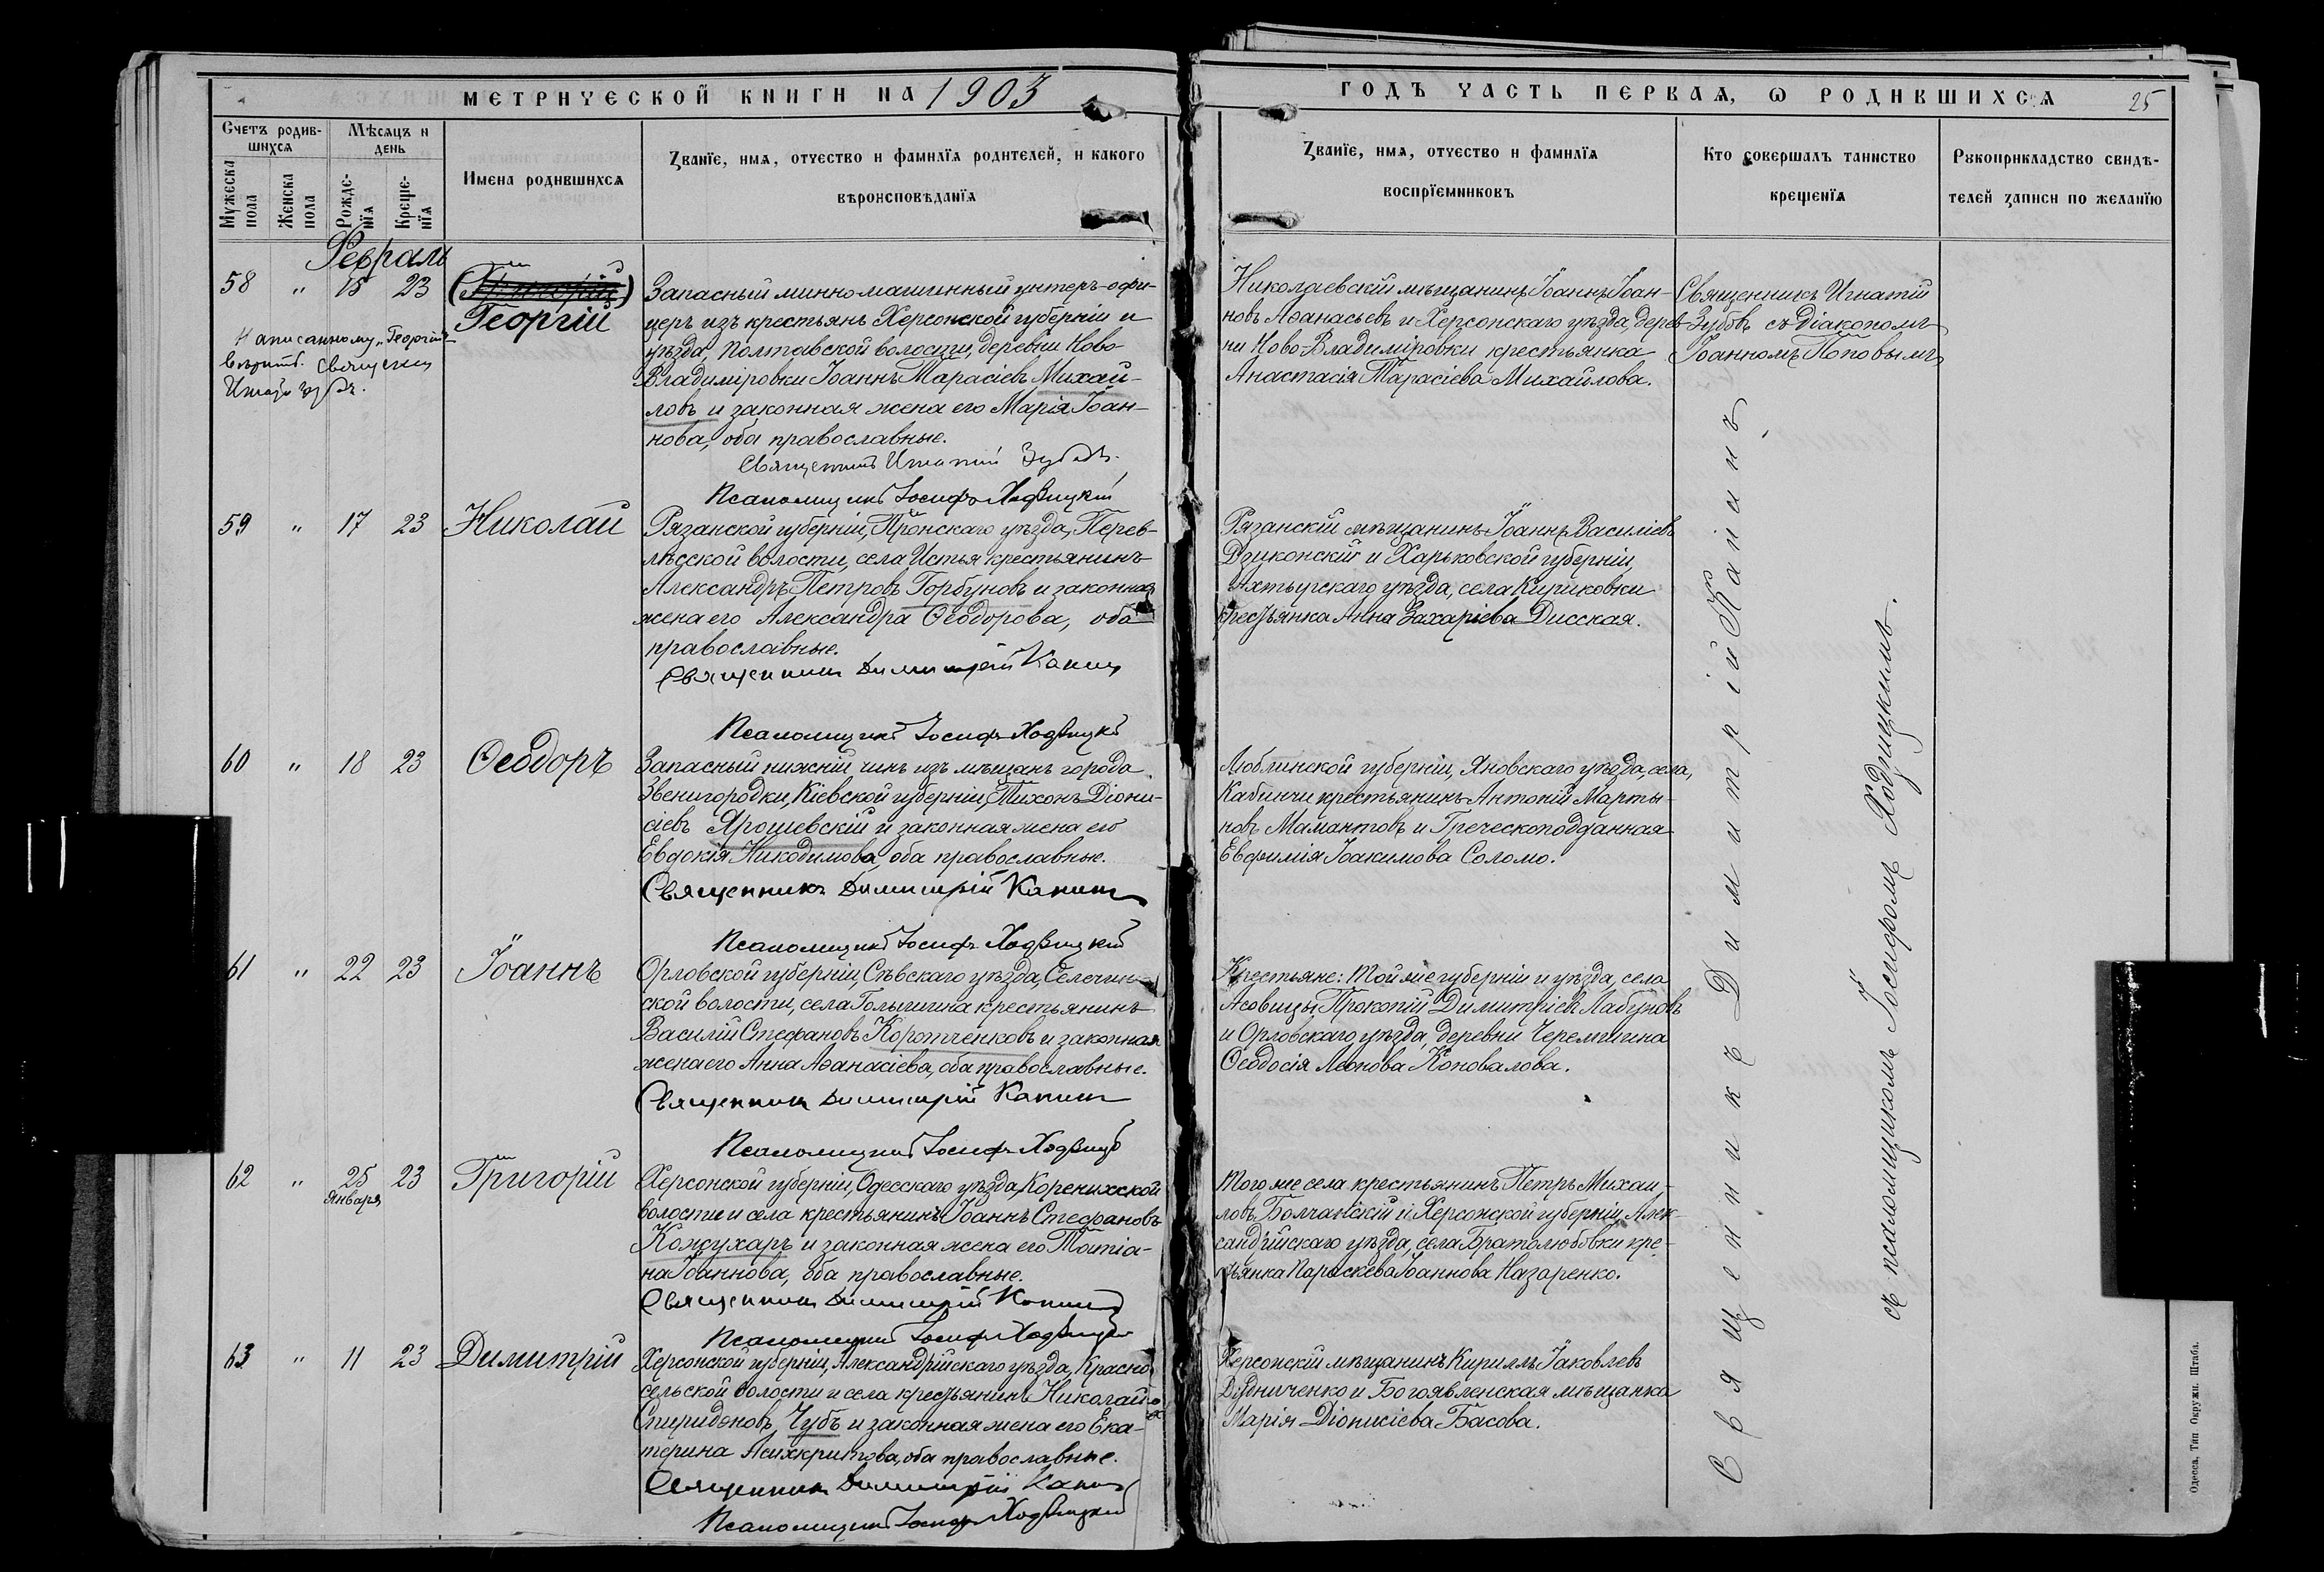 МЕТРИЧЕСКОЙ КНИГИ НА 1903
ГОДЪ ЧАСТЬ ПЕРВАЯ, Ѡ РОДИВШИХСЯ
25
Счетъ родив-
шихся
Мѣсяцъ и
день
Мужеска
пола
Женска
пола
Рожде-
нїя
Креще-
нїя
Имена родившихся
Званїе, имя, отчество и фамилїя родителей, и какого
вѣроисповѣданїя
Званїе, имя, отчество и фамилїя
воспрїемниковъ
Кто совершалъ таинство
крещенїя
Рукоприкладство свидѣ-
телей записи по желанїю
Февраль
58 " 15 23
Георгій
Написанному „Георгій"
вѣрить. Священникъ
Игнатій Зубовъ.
Запасный минно-машинный унтеръ-офи-
церъ изъ крестьянъ Херсонской губерніи и
уѣзда, Полтавской волости, деревни Ново-
Владиміровки Іоаннъ Тарасіевъ Михай-
ловъ и законная жена его Марія Іоан-
нова, оба православные.
Священникъ Игнатій Зубовъ.
Псаломщикъ Іосифъ Ходзицкій
Николаевскій мѣщанинъ Іоаннъ Іоан-
новъ Аѳанасьевъ и Херсонскаго уѣзда, дерев-
ни Ново-Владиміровки крестьянка
Анастасія Тарасіева Михайлова.
Священникъ Игнатій
Зубовъ съ діакономъ
Іоанномъ Поповымъ
59 " 17 23 Николай
Рязанской губерніи, Пронскаго уѣзда, Перев-
лѣсской волости, села Истья крестьянинъ
Александръ Петровъ Горбуновъ и законная
жена его Александра Ѳеодорова, оба
православные.
Священникъ Димитрій Капинъ
Псаломщикъ Іосифъ Ходзицкій
Рязанскій мѣщанинъ Іоаннъ Василіевъ
Дзиконскій и Харьковской губерніи,
Ахтырскаго уѣзда, села Кириковки
крестьянка Анна Захаріева Дисская.
60 " 18 23 Ѳеодоръ
Запасный нижній чинъ изъ мѣщанъ города
Звенигородки, Кіевской губерніи, Тихонъ Діони-
сіевъ Ярошевскій и законная жена его
Евдокія Никодимова, оба православные.
Священникъ Димитрій Капинъ
Псаломщикъ Іосифъ Ходзицкій
Люблинской губерніи, Яновскаго уѣзда, села,
Кабинчи крестьянинъ Антоній Марты-
новъ Мамонтовъ и Греческоподданная
Евфимія Іоакимова Соломо.
61 " 22 23 Іоаннъ
Орловской губерніи, Сѣвскаго уѣзда, Селечин-
ской волости, села Голышина крестьянинъ
Василій Стефановъ Коротченковъ и законная
жена его Анна Аѳанасіева, оба православные.
Священникъ Димитрій Капинъ
Псаломщикъ Іосифъ Ходзицкій
Крестьяне: Той же губерніи и уѣзда, села
Асовицы Прокопій Димитріевъ Лабуновъ
и Орловскаго уѣзда, деревни Черемшина
Ѳеодосія Леонова Коновалова.
62 " 25 23 Григорій
Января
Херсонской губерніи, Одесскаго уѣзда, Коренихской
волости и села крестьянинъ Іоаннъ Стефановъ
Кожухаръ и законная жена его Татіа-
на Іоаннова, оба православные.
Священникъ Димитрій Капинъ
Псаломщикъ Іосифъ Ходзицкій
Того же села крестьянинъ Петръ Михаи-
ловъ Болчанскій и Херсонской губерніи, Алек-
сандрійскаго уѣзда, села Братолюбовки кре-
тьянка Параскева Іоаннова Назаренко.
63 " 11 23 Димитрій
Херсонской губерніи, Александрійскаго уѣзда, Красно-
сельской волости и села крестьянинъ Николай
Спиридоновъ Чубъ и законная жена его Ека-
терина Асихкритова, оба православные.
Священникъ Димитрій Капинъ
Псаломщикъ Іосифъ Ходзицкій
Херсонскій мѣщанинъ Кириллъ Іаковлевъ
Дудниченко и Богоявленская мѣщанка
Марія Діонисіева Басова.
Священникъ Димитрій Капинъ
съ псаломщикомъ Іосифомъ Ходзицкимъ.
Одесса, Тип. Окружн. Штаба.